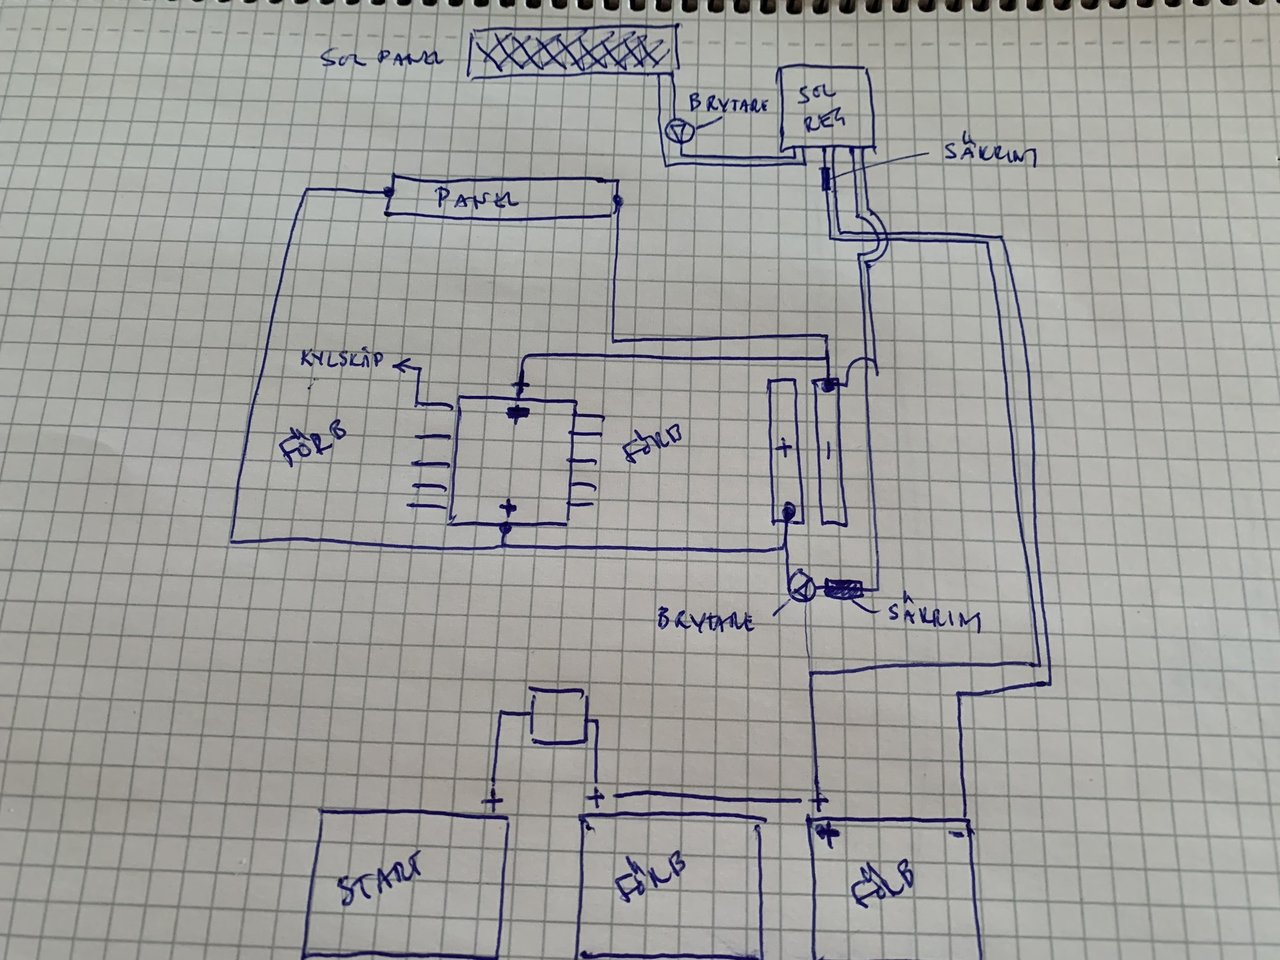 SOL PANEL
BRYTARE
SOL
REG
SÄKRIM
PANEL
KYLSKÅP
+
+
FÖRB
FÖRB
+
-
+
BRYTARE
SÄKRIM
+
+
+
+
-
START
FÖRB
FÖRB